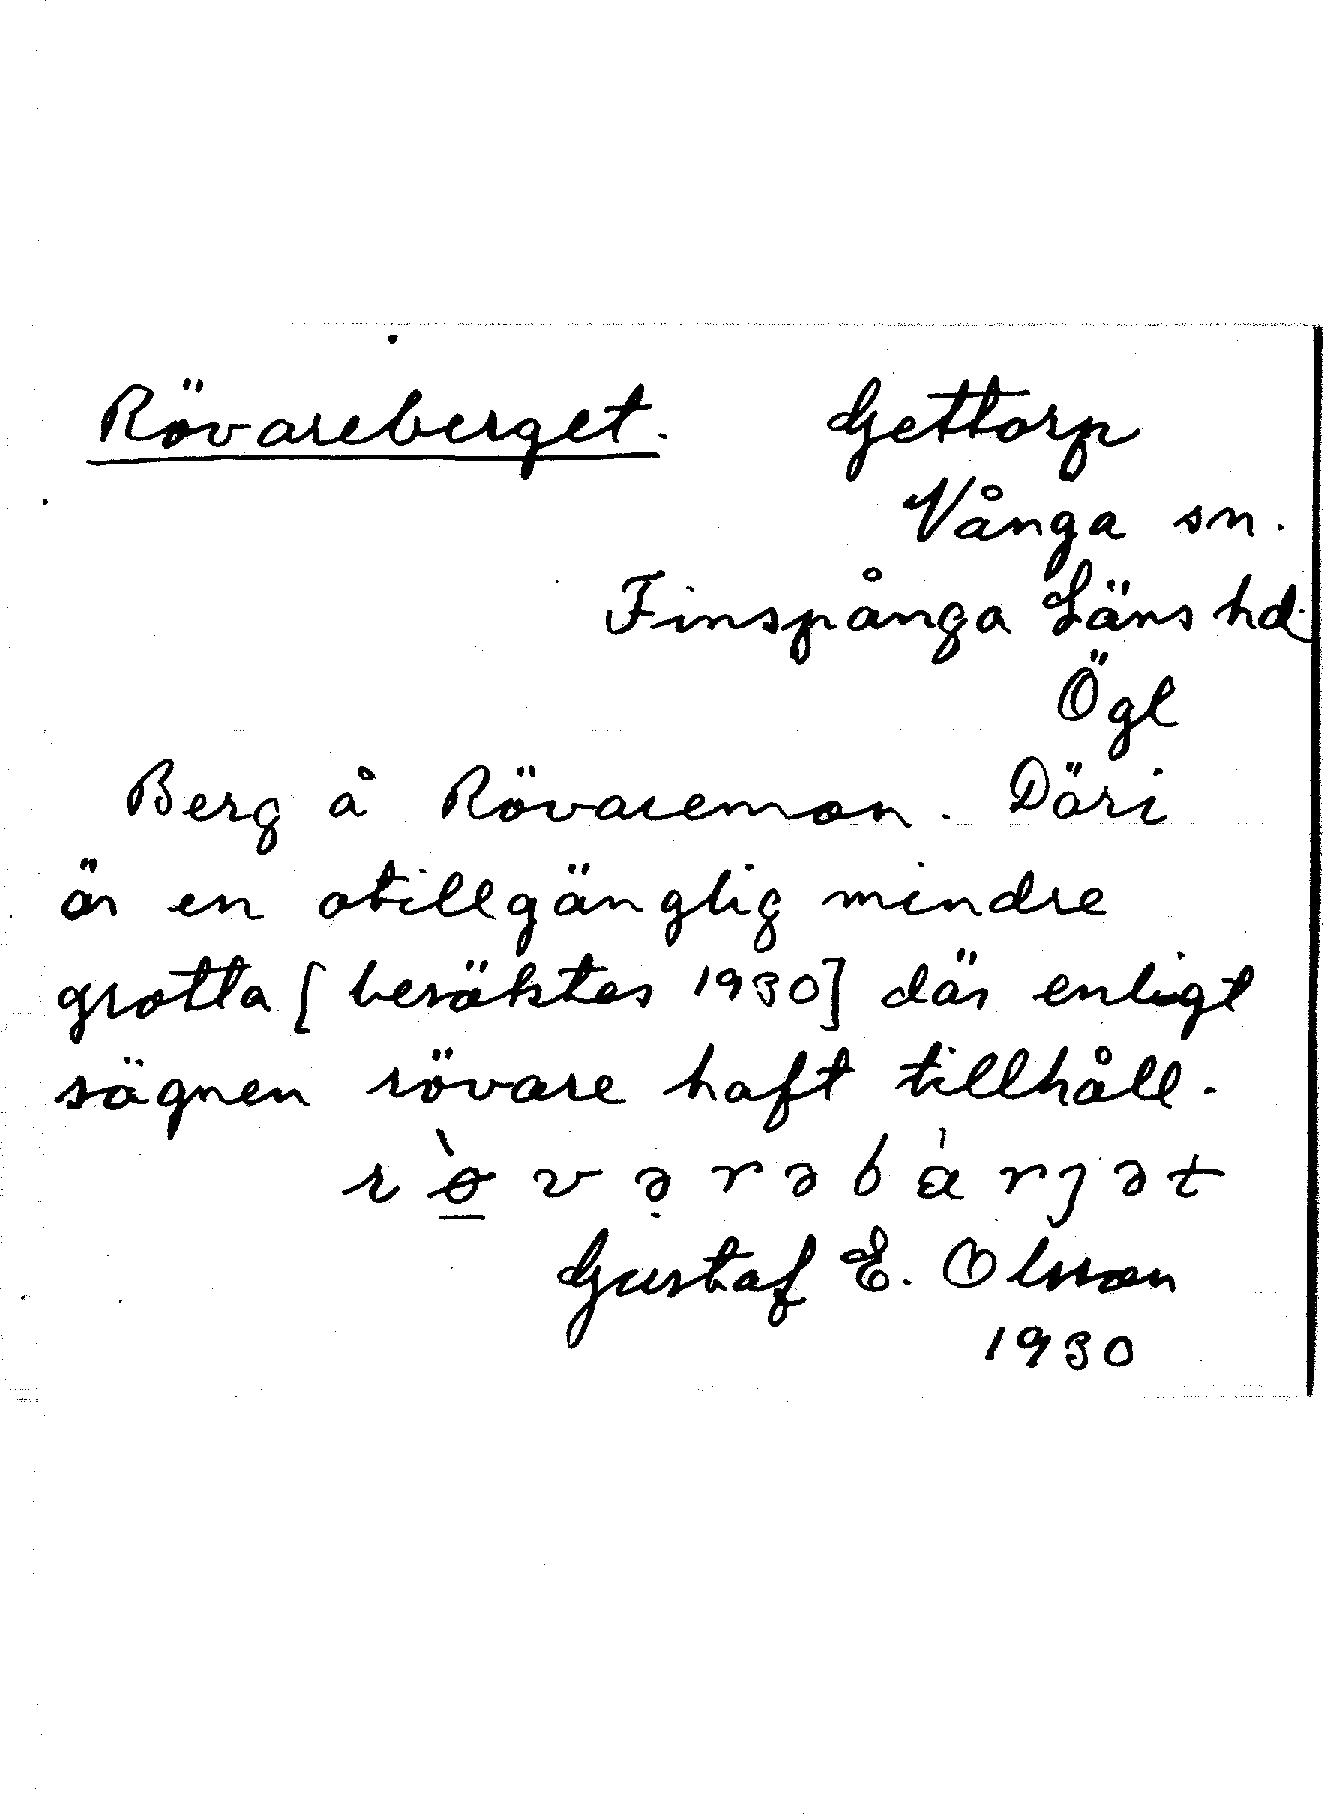 Rövareberget. Gettorp
Vånga sn.
Finspånga Läns hd.
Ögl
Berg å Rövaremon. Däri
är en otillgänglig mindre
grotta [besöktes 1930] där enligt
sägnen rövare haft tillhåll.
rø̲̀və̣rəbàrjət
Gustaf E. Olsson
1930